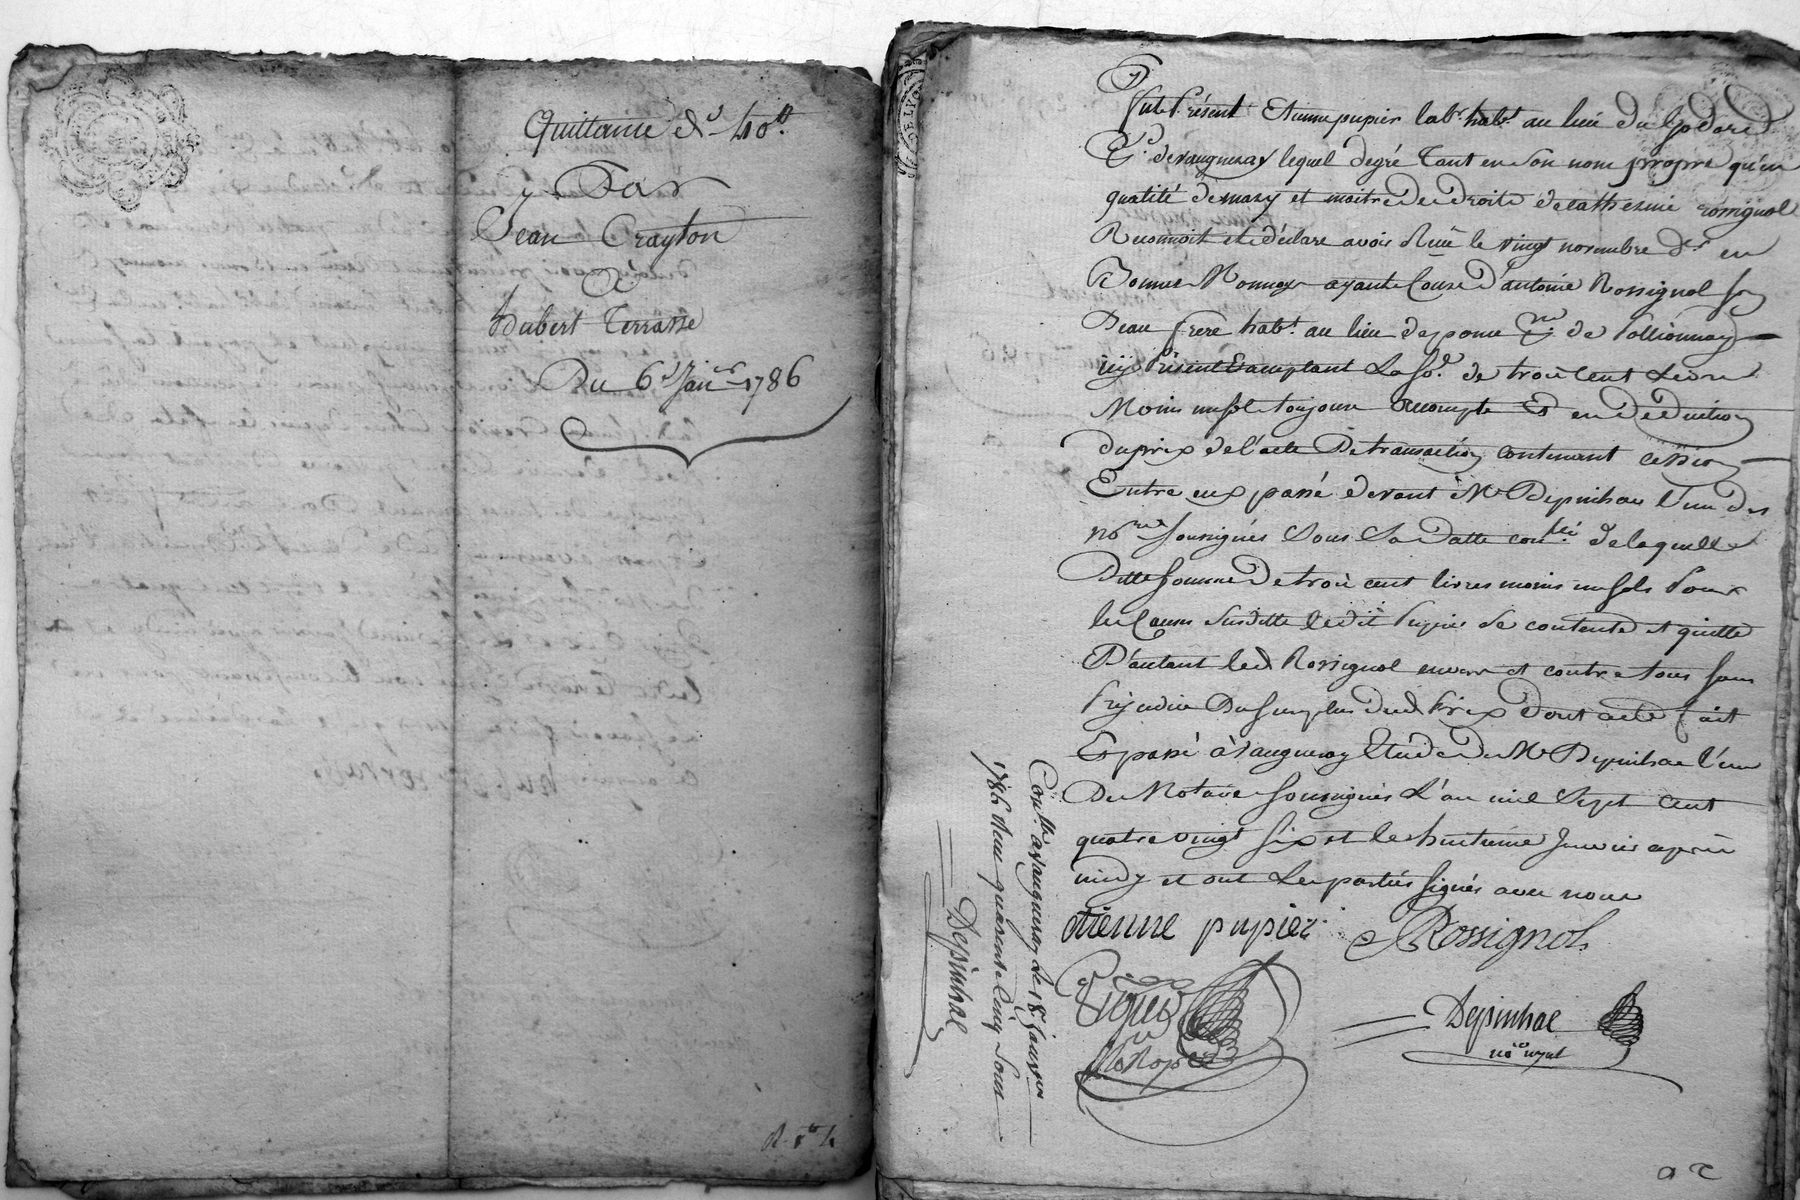 Quittance de 40lt
Par
Jean Crayton
A
hubert Terrasse
Du 6e Janer 1786
R. 1er 4
fut Présent Etienne pupier labr habt au lieu du Godard
Psse de vaugneray lequel degré tant en son nom propre qu'en
qualité de mary et maitre De droits de cattherine rossignol
Reconnoit et déclare avoir Recû le vingt novembre dr en
Bonne Monnoye ayant Cours D'antoine Rossignol son
Beau frere habt au lieu de pome psse de Pollionnay
icy Présent Et acceptant La So.e de trois Cent Livres
Moins un sol toujours acompte Et en Deduction
du prix de l'acte De transaction contenant cession
Entre eux passé devant Me Depinhac l'un des
nores soussignés Sous Sa Datte conllé de laquelle
Ditte somme De trois cent livres moins un sols Pour
les Causes Susdittes ledit Pupier se contente et quitte
D'autant led. Rossignol envers et contre tous sans
Préjudice Du surplus dud. Prix dont acte fait
Et passé à Vaugneray Etude de Me Depinhac l'un
Des Notaires soussignés L'an mil Sept cent
quatre vingt six et le huitieme Janvier après
midy et ont Les parties signés avec nous
étienne pupier Rossignol
Depinhac
nore royal
Conllé a Vaugneray Le 18 Janver
1786 reçu quarante Cinq Sous
Depinhac